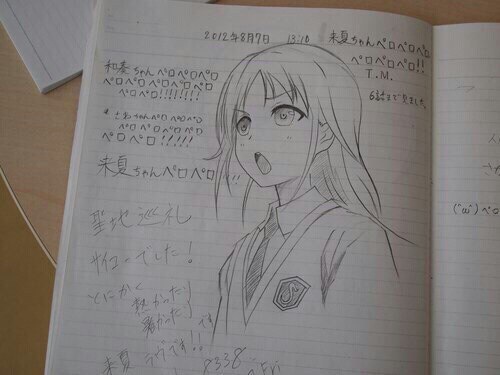 2012年8月7日 13:10
来夏ちゃんペロペロペロ
ペロペロペロ!!
T.M.
6話まで見ました
和奏ちゃんペロペロペロ
ペロペロペロペロペロ
ペロペロ!!!!!!!
さわちゃんペロペロペロ
ペロペロペロペロ
ペロペロ!!!!!
来夏ちゃんペロペロ!!
聖地巡礼
サイコーでした!
とにかく
熱かった!
暑かった!
です
来夏 ラヴです!!
2338
S
('ω')ペロ